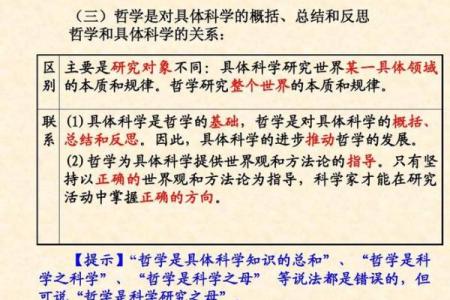 （三）哲学是对具体科学的概括、总结和反思
哲学和具体科学的关系：
区别
主要是研究对象不同：具体科学研究世界某一具体领域
的本质和规律。哲学研究整个世界的本质和规律。
联系
(1)具体科学是哲学的基础，哲学是对具体科学的概括、
总结和反思。因此，具体科学的进步推动哲学的发展。
(2)哲学为具体科学提供世界观和方法论的指导。只有坚
持以正确的世界观和方法论为指导，科学家才能在研究
活动中掌握正确的方向。
【提示】“哲学是具体科学知识的总和”、“哲学是科
学之科学”、“哲学是科学之母” 等说法都是错误的，但
可说“哲学是科学研究之母”。